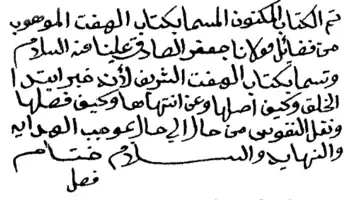 تم الكتاب المكنون المسما بكتاب الهفت الموهوب
من فضائل مولانا جعفر الصادق علينا منه السلام
وتسما بكتاب الهفت الشريف لأنه خبر ابتدا
الخلق وكيف اصلها وعن انتهاها وكيف فصلها
ونقل النفوس من حال الى حال عوجب الهدايه
والنهايه والسلام ختام
فصل